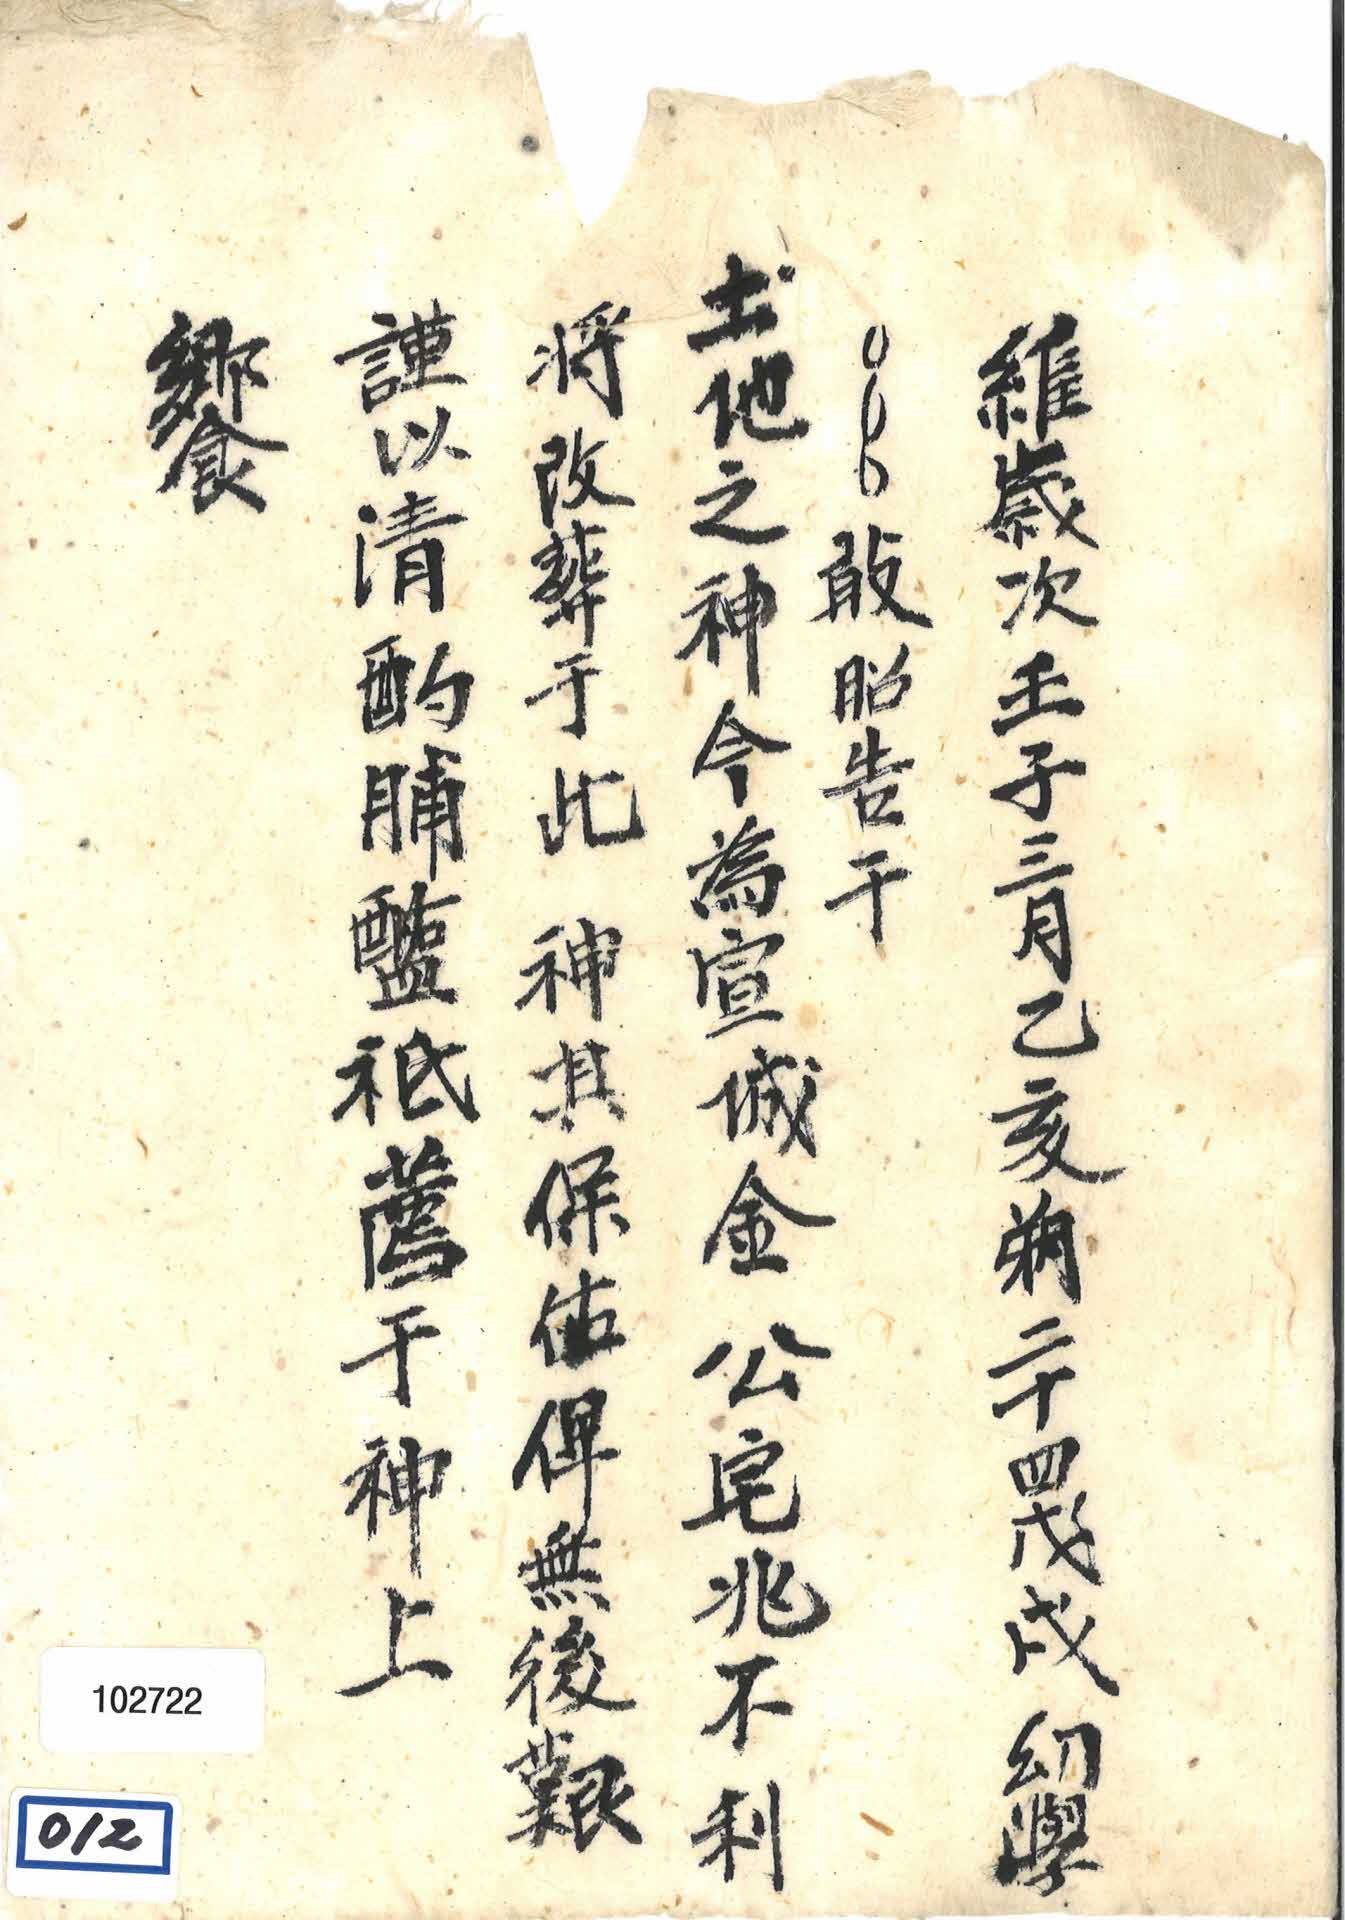 維歲次壬子三月乙亥朔二十四戊戌 幼學
〇〇〇敢昭告于
土地之神今為宣城金 公宅兆不利
將改葬于此 神其保佑俾無後艱
謹以清酌脯醢祗薦于神上
饗
102722
012